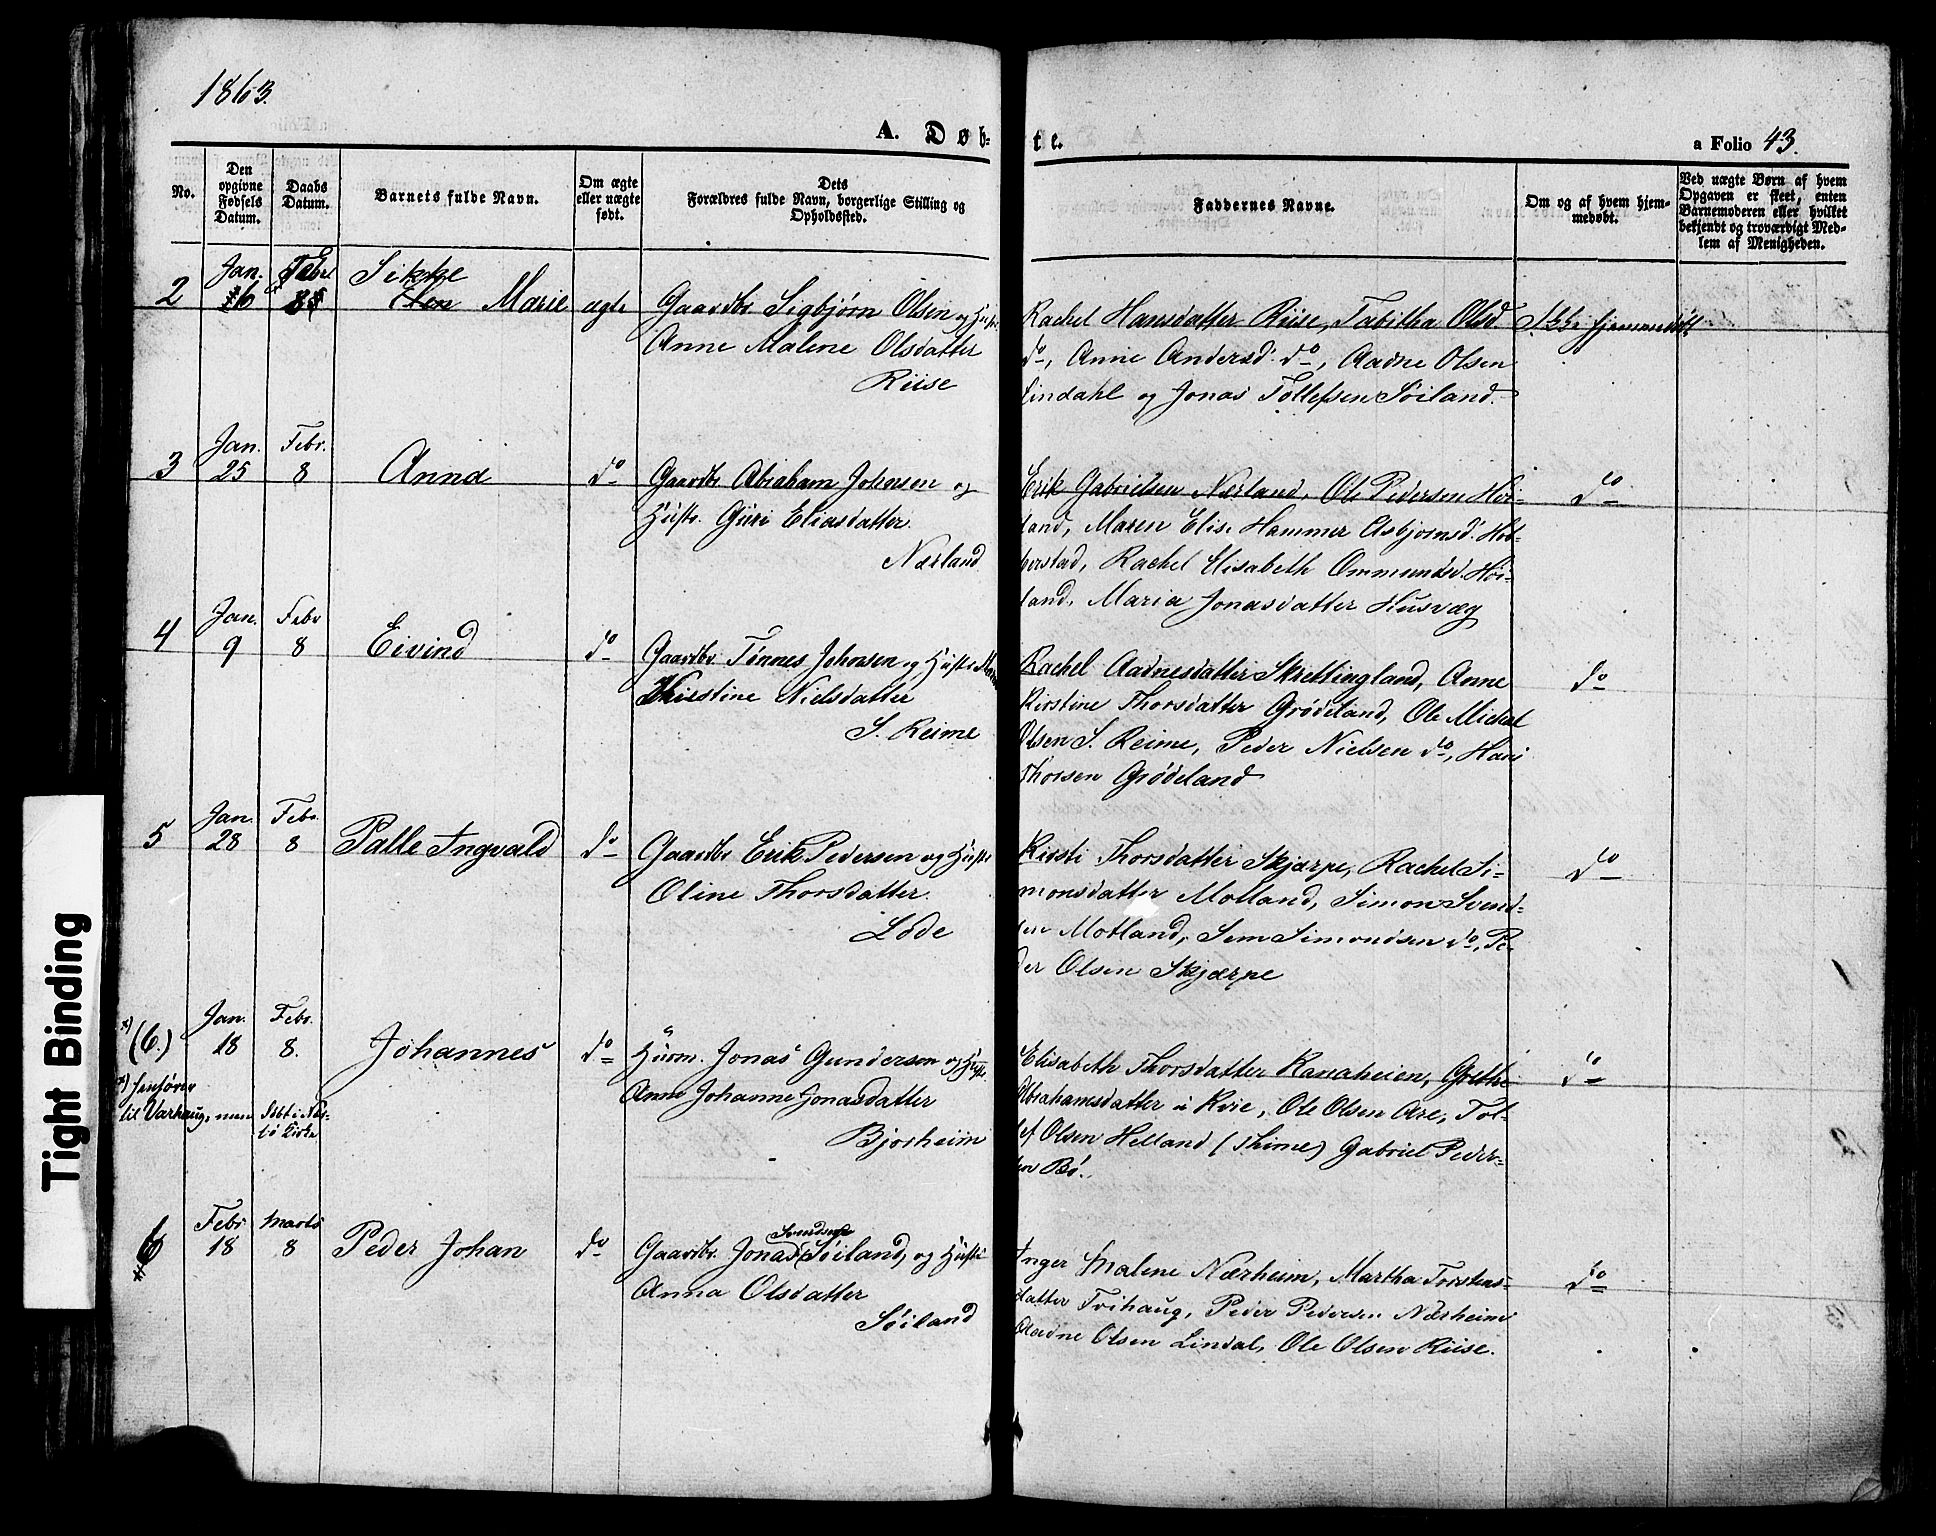 1863.
A. Døb-
te.
a Folio 43.
No.
Den opgivne Fødsels Datum.
Daabs Datum.
Barnets fulde Navn.
Om ægte eller uægte født.
Dets Forældres fulde Navn, borgerlige Stilling og Opholdssted.
Faddernes Navne.
Om og af hvem hjemmedøbt.
Ved uægte Børn af hvem Opgaven er skeet, enten Barnemoderen eller hvilket bekjendt og troværdigt Medlem af Menigheden.
2 Jan. 16 Febr. 8 Sikke Marie ægte Gaardbr. Sigbjørn Olsen og Hustr.
Anne Malene Olsdatter
Riise
Rachel Hansdatter Riise, Tabitha Olsd.
do, Anne Andersd. do, Aadne Olsen
Lindahl og Jonas Tollefsen Søiland.
Ikke hjemmedøbt
3 Jan. 25 Febr. 8 Anna do Gaardbr. Abraham Johnsen og
Hustr. Guri Eliasdatter.
Nærland
Erik Gabrielsen Nærland, Ole Pedersen Høi-
land, Maren Elise Hammer Asbjornsd. Hob-
berstad, Rachel Elisabeth Ommundsd. Høi-
land, Maria Jonasdatter Husvæg
do
4 Jan. 9 Febr 8 Eivind do Gaardbr. Tønnes Johnsen og Hustr.
Kristine Nielsdatter
S. Reime
Rachel Aadnesdatter Skrettingland, Anne
Kirstine Thorsdatter Grødeland, Ole Michel
Olsen S. Reime, Peder Nielsen do, Hans
Thorsen Grødeland
do
5 Jan. 28 Febr. 8 Palle Ingvald do Gaardbr. Erik Pedersen og Hustr
Oline Thorsdatter.
Lode
Kirsti Thorsdatter Skjærpe, Rachel Si-
monsdatter Motland, Simon Svend-
sen Motland, Sem Simondsen do, Pe-
der Olsen Skjærpe
do
x) (6.) Jan. 18 Febr. 8. Johannes do Huusm. Jonas Gunderson og Hustr.
Anne Johanne Jonasdatter
Bjorheim
Elisabeth Thorsdatter Kanaheien, Grethe
Abrahamsdatter i Kvie, Ole Olsen Are, Tol-
lef Olsen Helland (Thime) Gabriel Peder-
sen Bø.
do
x) henføres
til Varhaug, men døbt i Nær-
bø Kirke
6 Febr. 18 Marts 8 Peder Johan do Gaardbr. Jonas Svendsen Søiland, og Hustr
Anna Olsdatter
Søiland
Inger Malene Nærheim, Martha Torstens-
datter Tvihaug, Peder Pedersen Nærheim
Aadne Olsen Lindal, Ole Olsen Riise.
do
Tight Binding